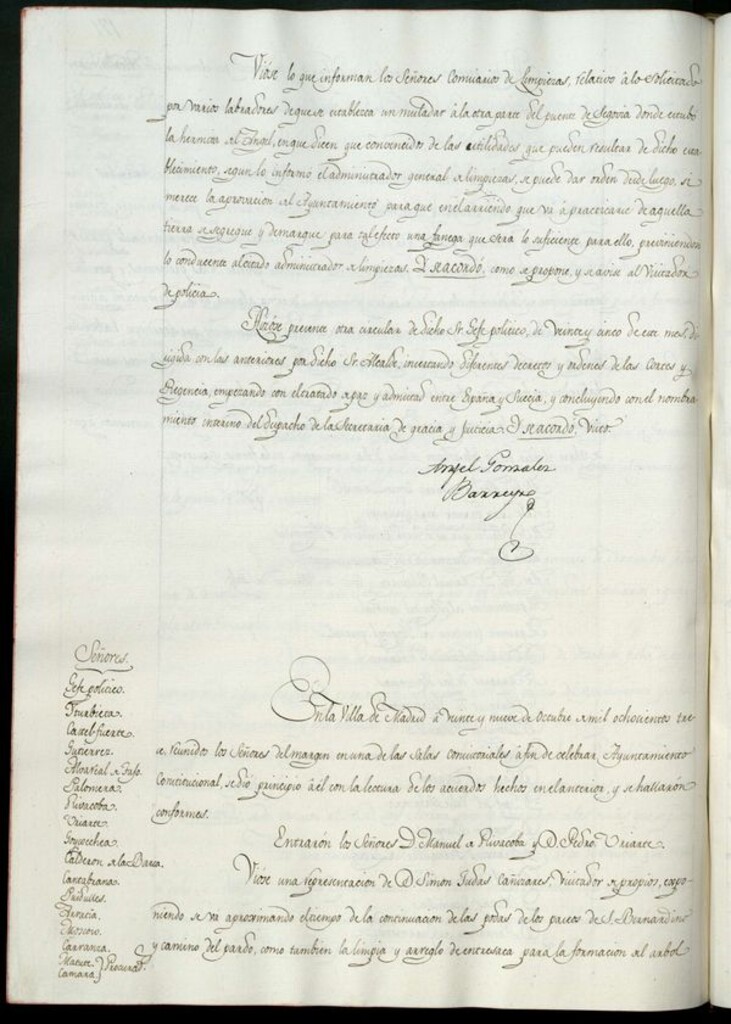 Viose lo que informan los Señores Comisarios de Limpiezas, relativo à lo solicitado
por varios labradores de que se establezca un muladar à la otra parte del puente de Segovia donde estubo
la hermita del Angel, en que dicen que convencidos de las utilidades que pueden resultar de dicho esta
blecimiento, segun lo informó el administrador general de limpiezas, se puede dar orden desde luego, si
merece la aprovacion del Ayuntamiento para que en el arriendo que và à practicarse de aquella
tierra se segregue y demarque para tal efecto una fanega que será lo suficiente para ello, previniendose
lo conducente al citado administrador de limpiezas. Y se acordó, como se propone, y se avise al Visitador
de policia.
Hizose presente otra circular de dicho Sr. Gefe politico, de veinte y cinco de este mes, di
rigida con las anteriores por dicho Sr. Alcalde, insertando diferentes decretos y ordenes de las Cortes y
Regencia, empezando con el tratado de paz y admistad entre España y Suecia, y concluyendo con el nombra
miento interino del Despacho de la Secretaria de gracia y Justicia. Y se acordó, Visto.
Angel Gonzalez
Barreyro
Señores.
Gefe politico.
Yturbieta.
Castel-fuerte.
Gutierrez.
Palomera.
Rivacoba.
Uriarte.
Goycoechea.
Calderon de la Barca.
Cantabrana.
Aracia.
Moscoso.
Carranza.
Matute.
Camara.
Procurad.s
En la Villa de Madrid à veinte y nueve de Octubre de mil ochocientos tre
ce, reunidos los Señores del margen en una de las Salas consistoriales à fin de celebrar Ayuntamiento
Constitucional, se dió principio à èl con la lectura de los acuerdos hechos en el anterior, y se hallaron
conformes.
Entrarón los Señores D. Manuel de Rivacoba y D. Pedro Uriarte.
Viose una representacion de D. Simon Judas Cañizares, Visitador de propios, expo
niendo se va aproximando el tiempo de la continuacion de las podas de los paseos de S. Bernardino
y camino del pardo, como tambien la limpia y arreglo de entresaca para la formacion del arbol